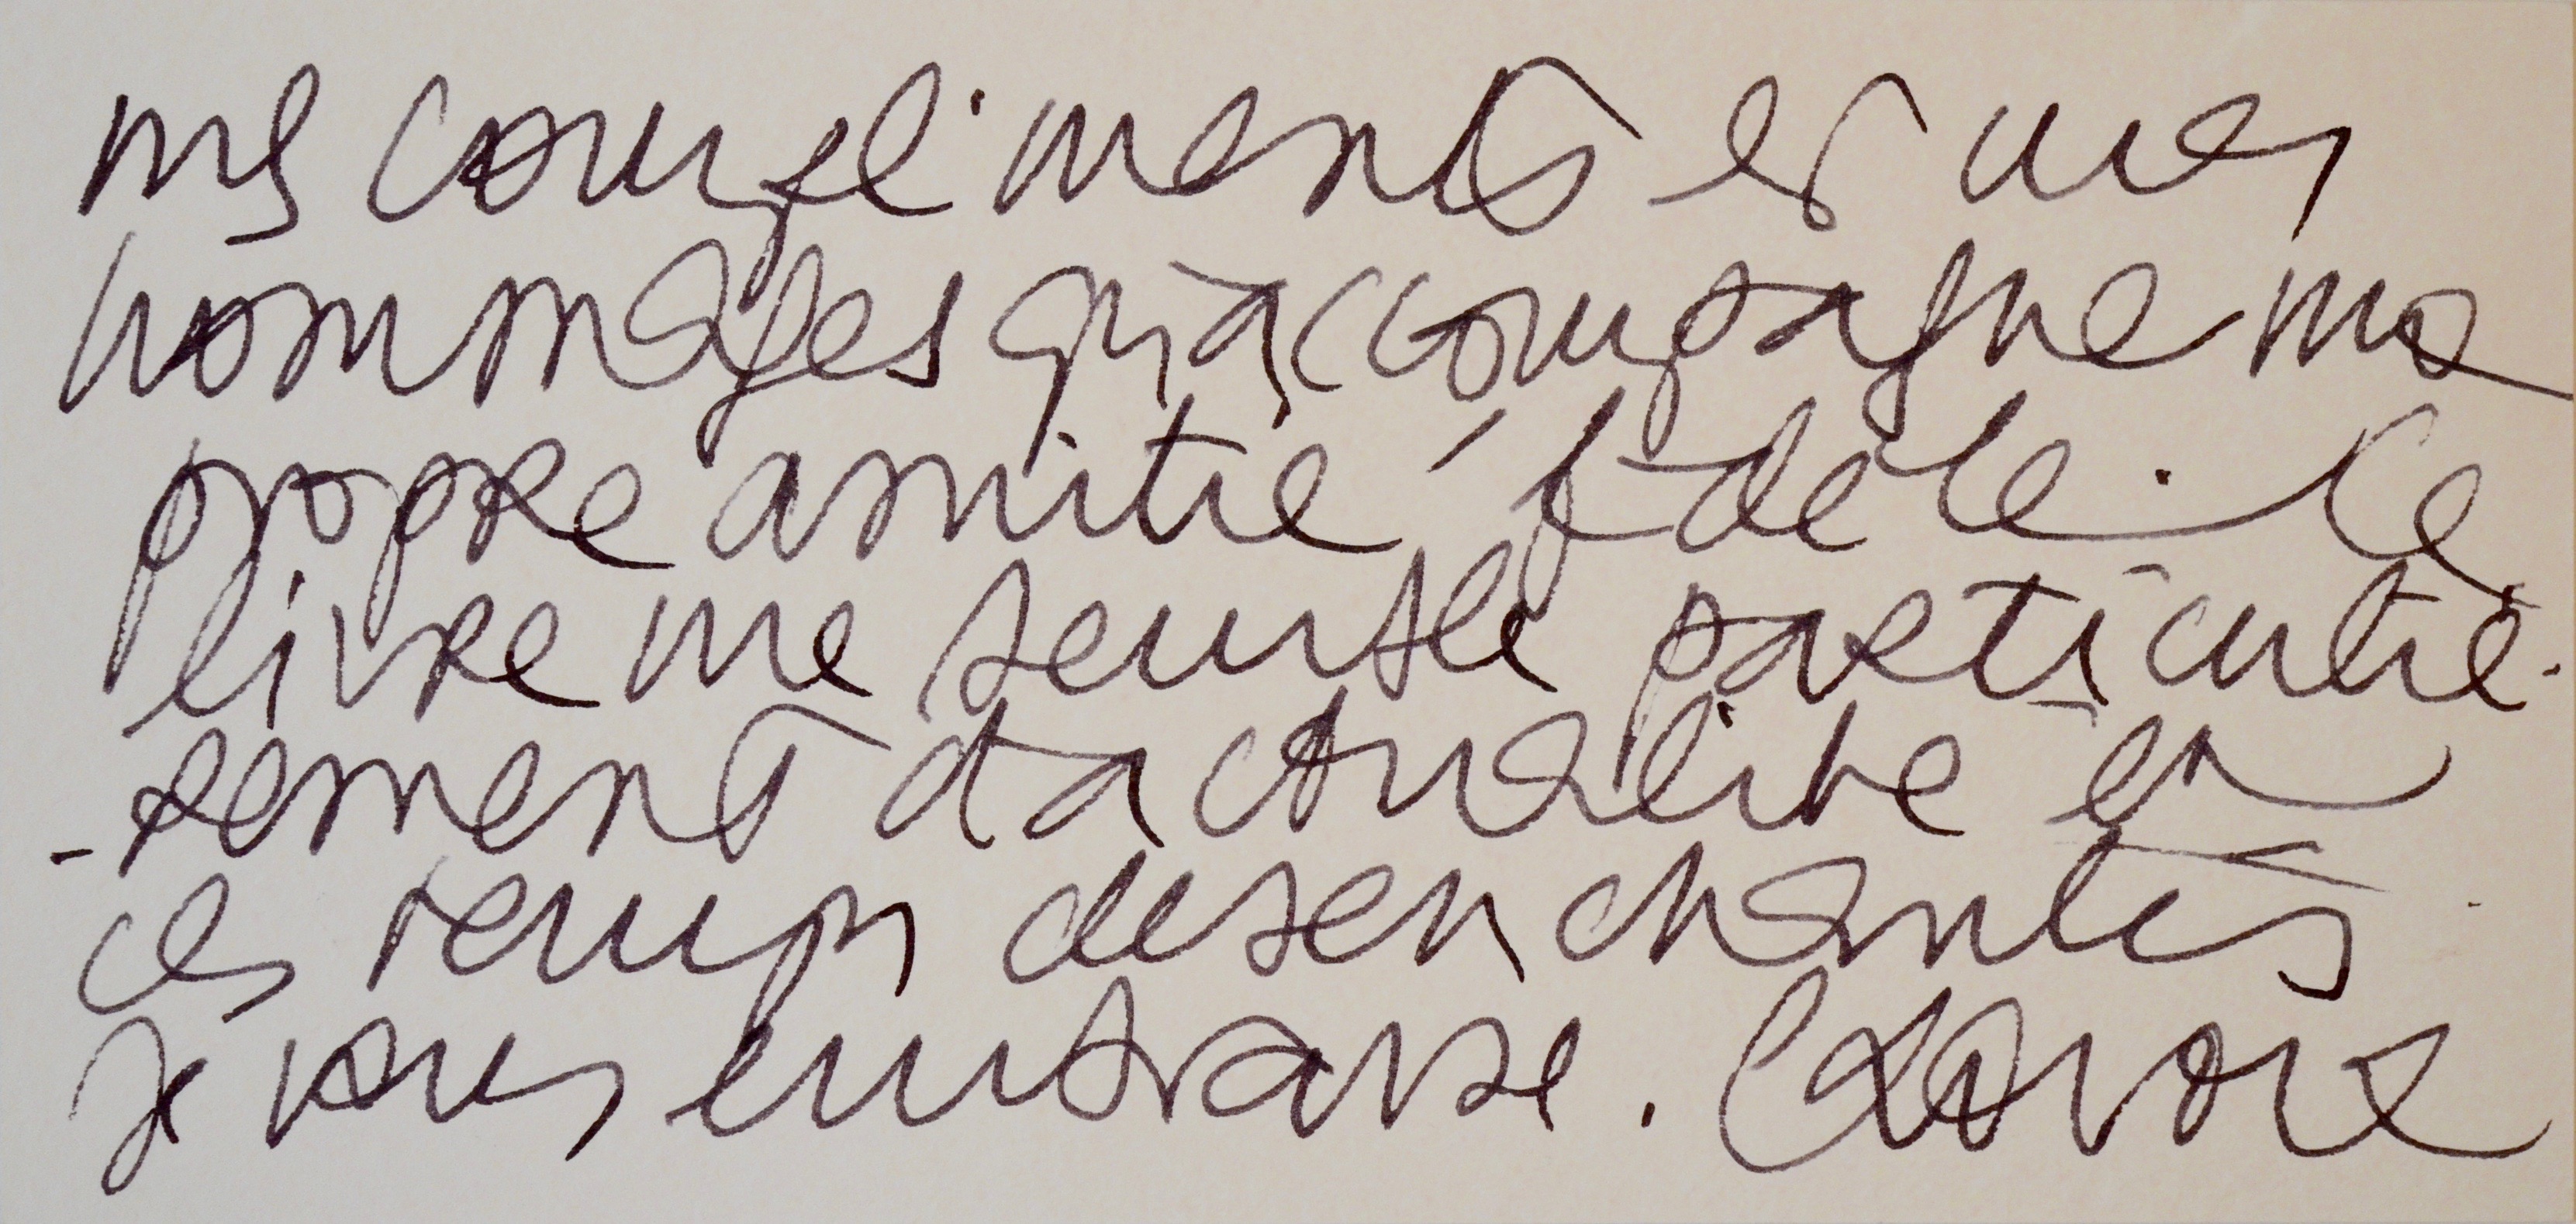 mes compliments et mes
hommages qu'accompagne ma
propre amitié fidèle. Ce
livre me semble particuliè-
-rement d'actualité en
ces temps désenchantés
Je vous embrasse.